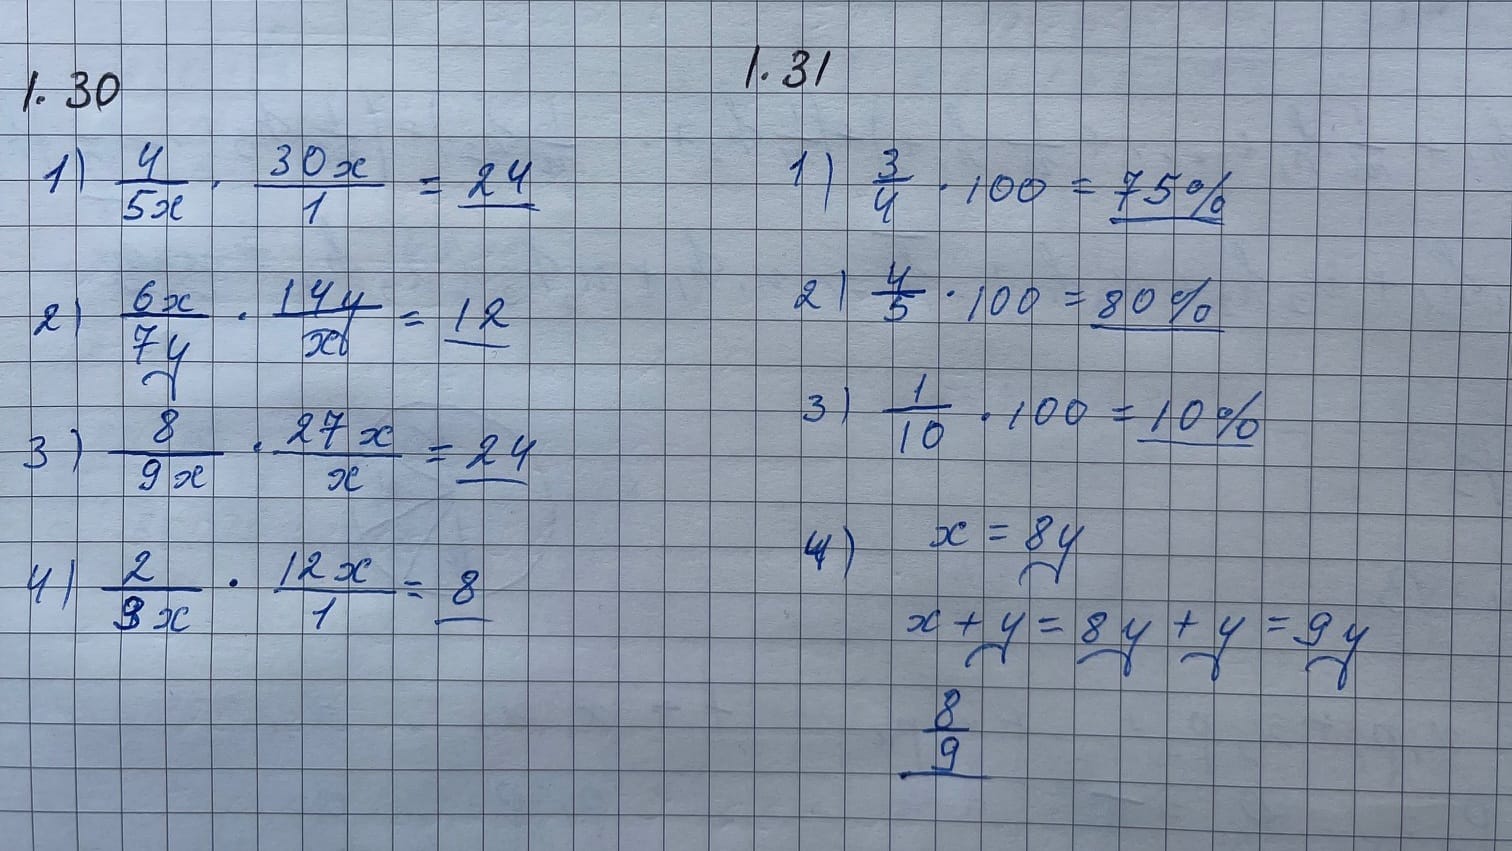 1.30
1) 4/5x · 30x/1 = 24
2) 6x/7y · 14y/x = 12
3) 8/9x · 27x/x = 24
4) 2/3x · 12x/1 = 8
1.31
1) 3/4 · 100 = 75%
2) 4/5 · 100 = 80%
3) 1/10 · 100 = 10%
4) x = 8y
x + y = 8y + y = 9y
8/9